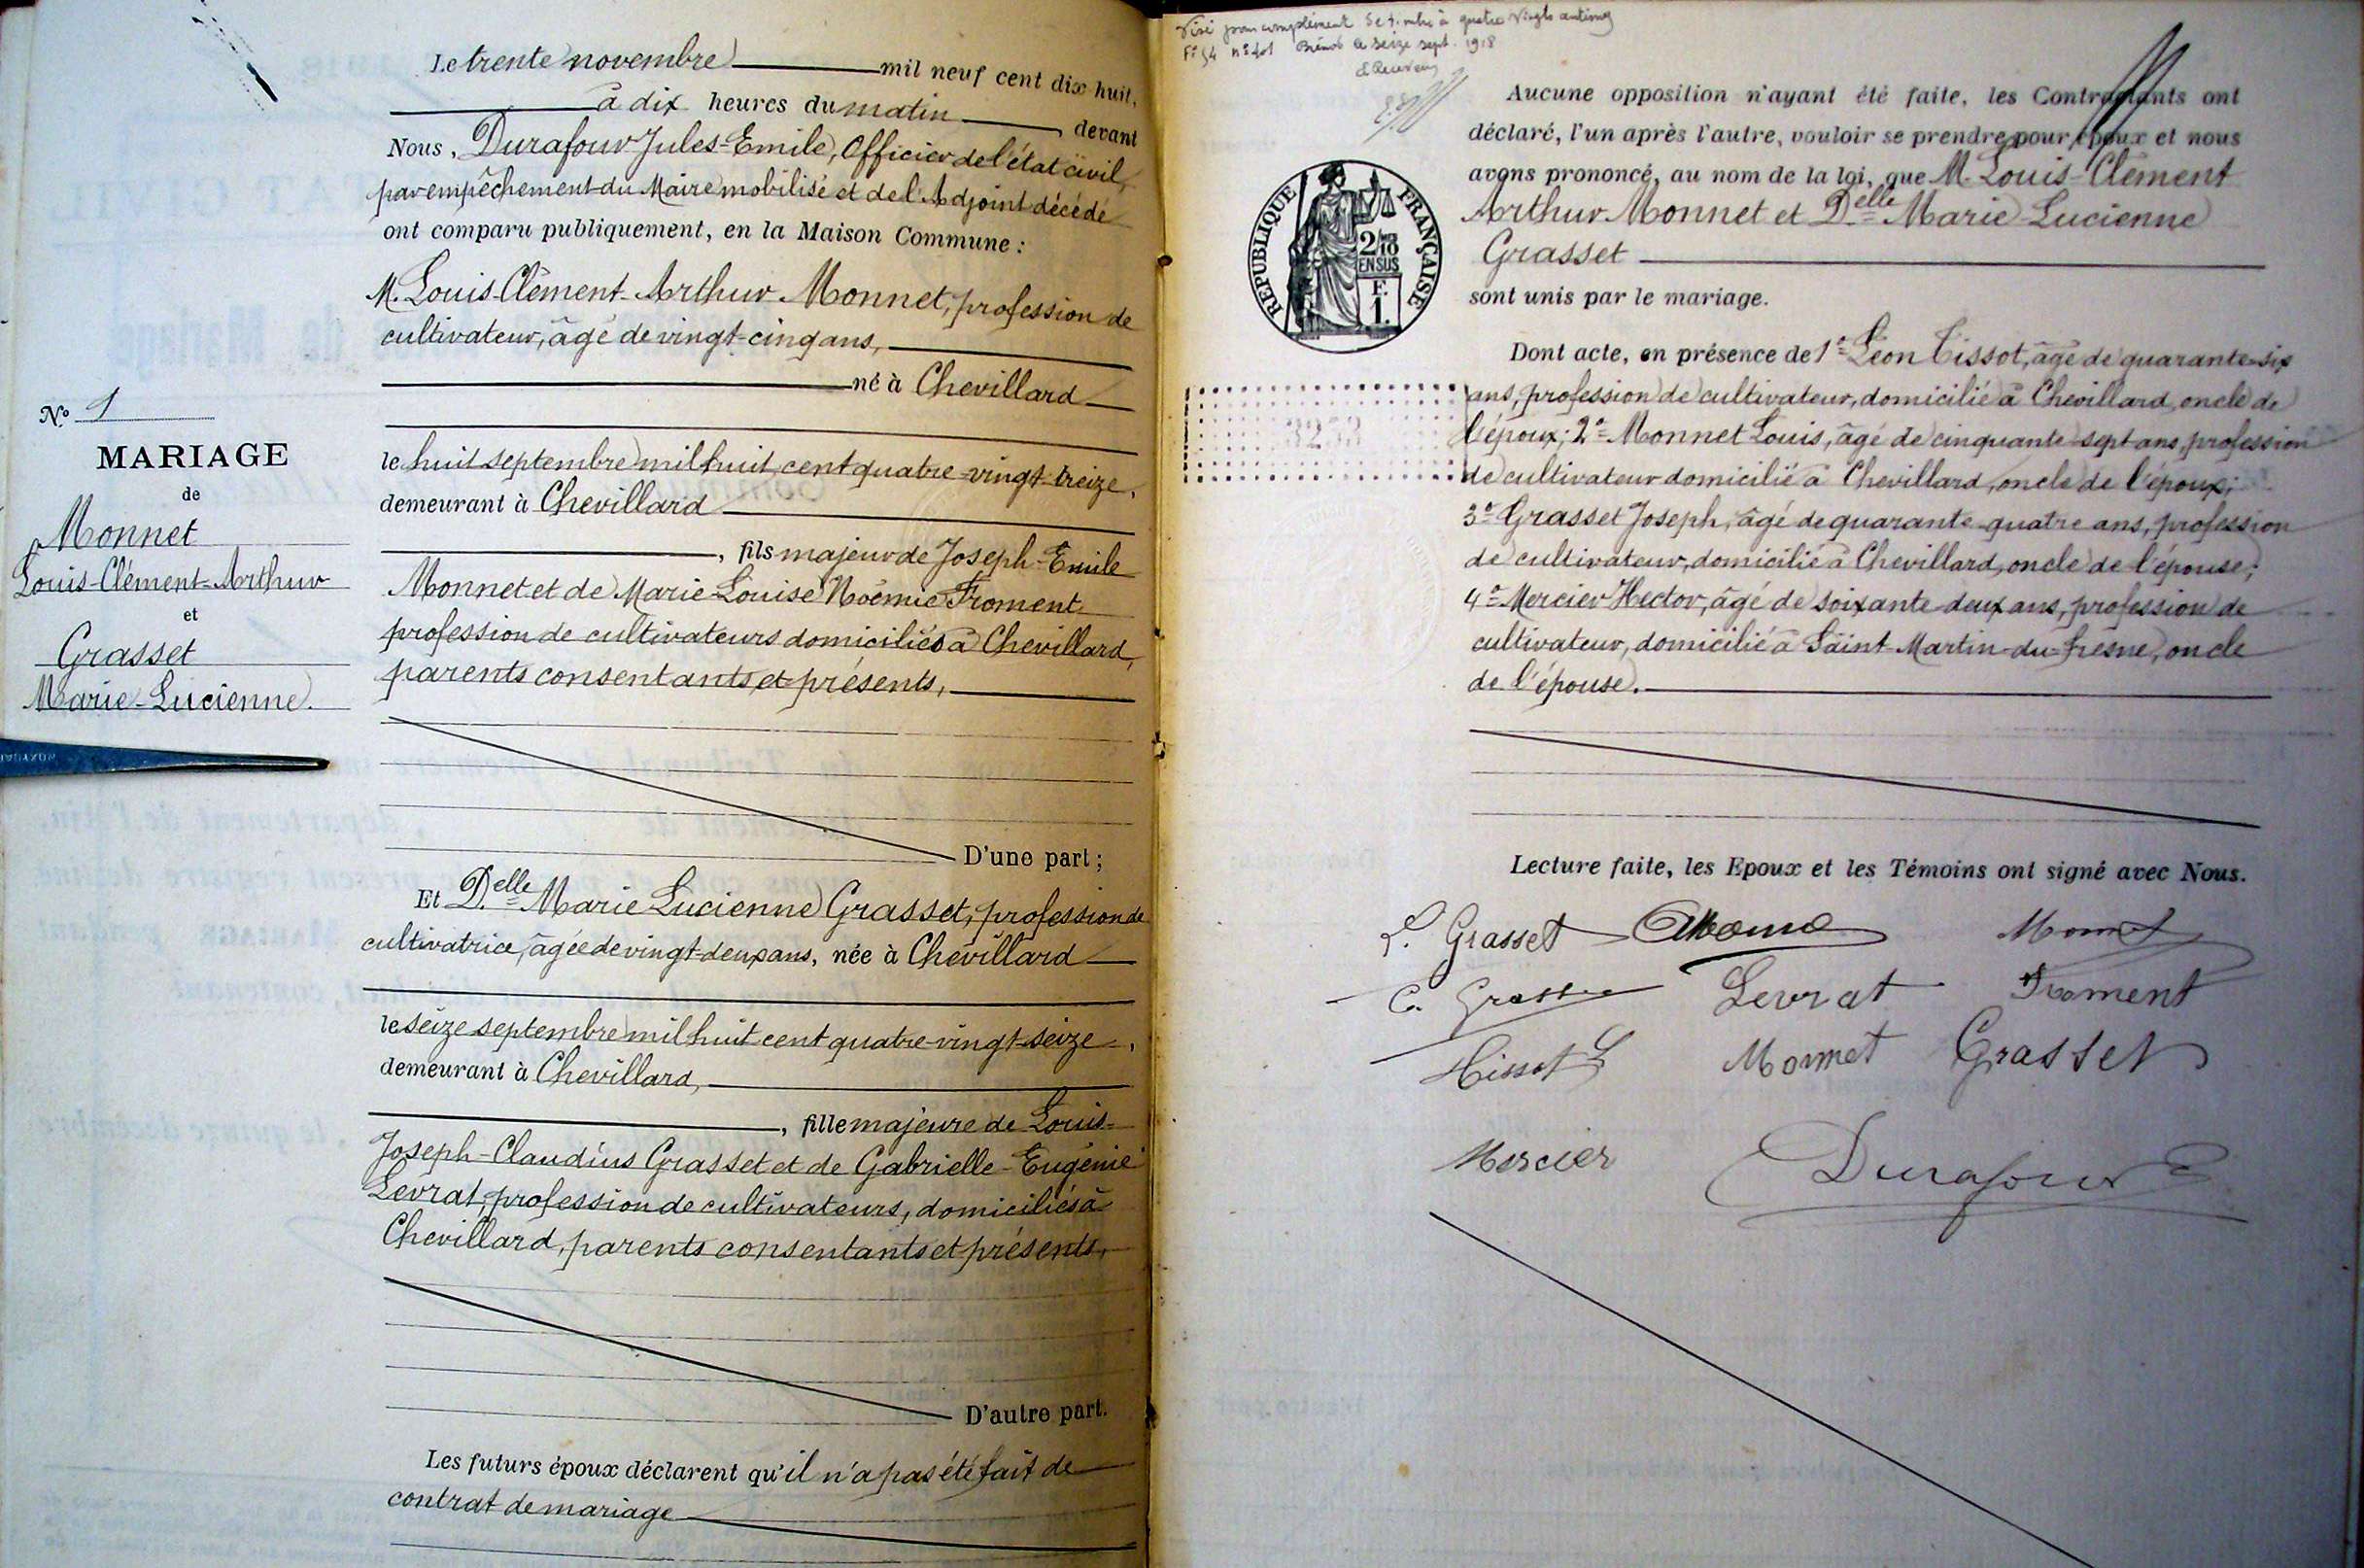 Le trente novembre mil neuf cent dix huit,
à dix heures du matin, devant
Nous, Durafour Jules-Emile, Officier de l'état civil,
par empêchement du Maire mobilisé et de l'Adjoint décédé
ont comparu publiquement, en la Maison Commune :
M. Louis-Clément-Arthur Monnet, profession de
cultivateur, âgé de vingt-cinq ans,
né à Chevillard
le huit septembre mil huit cent quatre-vingt-treize,
demeurant à Chevillard
, fils majeur de Joseph-Emile
Monnet et de Marie-Louise Noémie Froment
profession de cultivateurs domiciliés à Chevillard,
parents consentants et présents,
D'une part ;
Et Delle Marie Lucienne Grasset, profession de
cultivatrice, âgée de vingt-deux ans, née à Chevillard
le seize septembre mil huit cent quatre-vingt-seize,
demeurant à Chevillard,
, fille majeure de Louis-
Joseph-Claudius Grasset et de Gabrielle-Eugénie
Levrat, profession de cultivateurs, domiciliés à
Chevillard, parents consentants et présents,
D'autre part.
Les futurs époux déclarent qu'il n'a pas été fait de
contrat de mariage
N° 1
MARIAGE
de
Monnet
Louis-Clément-Arthur
et
Grasset
Marie-Lucienne.
Visé pour complément de timbre à quatre vingts centimes
F° 54 n° 401 Brénod le seize sept. 1918
RÉPUBLIQUE FRANÇAISE
2/10
EN SUS
F.
1.
Aucune opposition n'ayant été faite, les Contractants ont
déclaré, l'un après l'autre, vouloir se prendre pour époux et nous
avons prononcé, au nom de la loi, que M. Louis-Clément
Arthur Monnet et Delle Marie Lucienne
Grasset
sont unis par le mariage.
Dont acte, en présence de 1° Léon Tissot, âgé de quarante-six
ans, profession de cultivateur, domicilié à Chevillard, oncle de
l'époux; 2° Monnet Louis, âgé de cinquante-sept ans, profession
de cultivateur domicilié à Chevillard, oncle de l'époux;
3° Grasset Joseph, âgé de quarante-quatre ans, profession
de cultivateur, domicilié à Chevillard, oncle de l'épouse;
4° Mercier Hector, âgé de soixante-deux ans, profession de
cultivateur, domicilié à Saint-Martin-du-Fresne, oncle
de l'épouse.
Lecture faite, les Epoux et les Témoins ont signé avec Nous.
L. Grasset Monnet
C. Grasset Levrat Froment
Tissot L Monnet Grasset
Mercier Durafour E